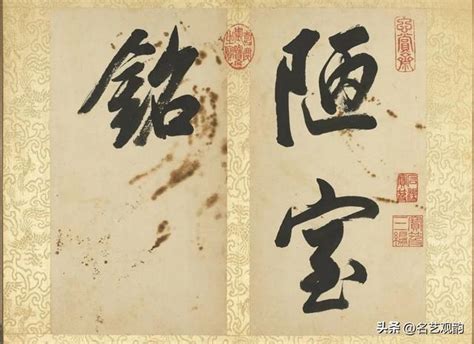 陋室
銘
头条 @名艺观韵